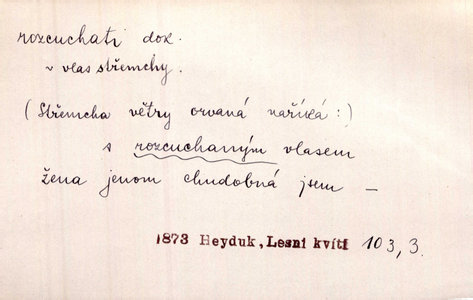 rozcuchati dok.
~ vlas střemchy.
(Střemcha větry orvaná naříká:)
s rozcuchaným vlasem
žena jenom chudobná jsem —
1873 Heyduk, Lesní kvítí 103, 3.